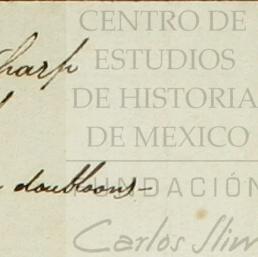 CENTRO DE
ESTUDIOS
Sharp
DE HISTORIA
DE MEXICO
doubloons-
FUNDACIÓN
Carlos Slim